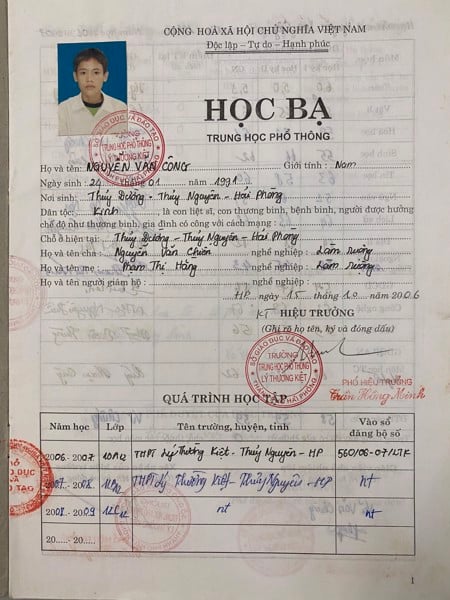 CỘNG HOÀ XÃ HỘI CHỦ NGHĨA VIỆT NAM
Độc lập – Tự do – Hạnh phúc
HỌC BẠ
TRUNG HỌC PHỔ THÔNG
SỞ GIÁO DỤC VÀ ĐÀO TẠO
TRƯỜNG
TRUNG HỌC PHỔ THÔNG
LÝ THƯỜNG KIỆT
Họ và tên: NGUYỄN VĂN CÔNG Giới tính: Nam
Ngày sinh: 24 tháng 01 năm 1991
Nơi sinh: Thủy Đường - Thủy Nguyên - Hải Phòng
Dân tộc: Kinh là con liệt sĩ, con thương binh, bệnh binh, người được hưởng
chế độ như thương binh, gia đình có công với cách mạng:
Chỗ ở hiện tại: Thủy Đường - Thủy Nguyên - Hải Phòng
Họ và tên cha: Nguyễn Văn Chiến nghề nghiệp: Làm ruộng
Họ và tên mẹ: Phạm Thị Hằng nghề nghiệp: Làm ruộng
Họ và tên người giám hộ: nghề nghiệp:
HP, ngày 15 tháng 10 năm 2006
KT HIỆU TRƯỞNG
(Ghi rõ họ tên, ký và đóng dấu)
SỞ GIÁO DỤC VÀ ĐÀO TẠO
TRƯỜNG
TRUNG HỌC PHỔ THÔNG
LÝ THƯỜNG KIỆT
T.P HẢI PHÒNG
PHÓ HIỆU TRƯỞNG
Trần Hồng Minh
QUÁ TRÌNH HỌC TẬP
Năm học Lớp Tên trường, huyện, tỉnh Vào sổ đăng bộ số
2006 - 2007 10A12 THPT Lý Thường Kiệt - Thủy Nguyên - HP 560/06-07/LTK
2007 - 2008 THPT Lý Thường Kiệt - Thủy Nguyên - HP nt
2008 - 2009 nt nt
20..... - 20.....
GIÁO DỤC
VÀ
ĐÀO TẠO
1